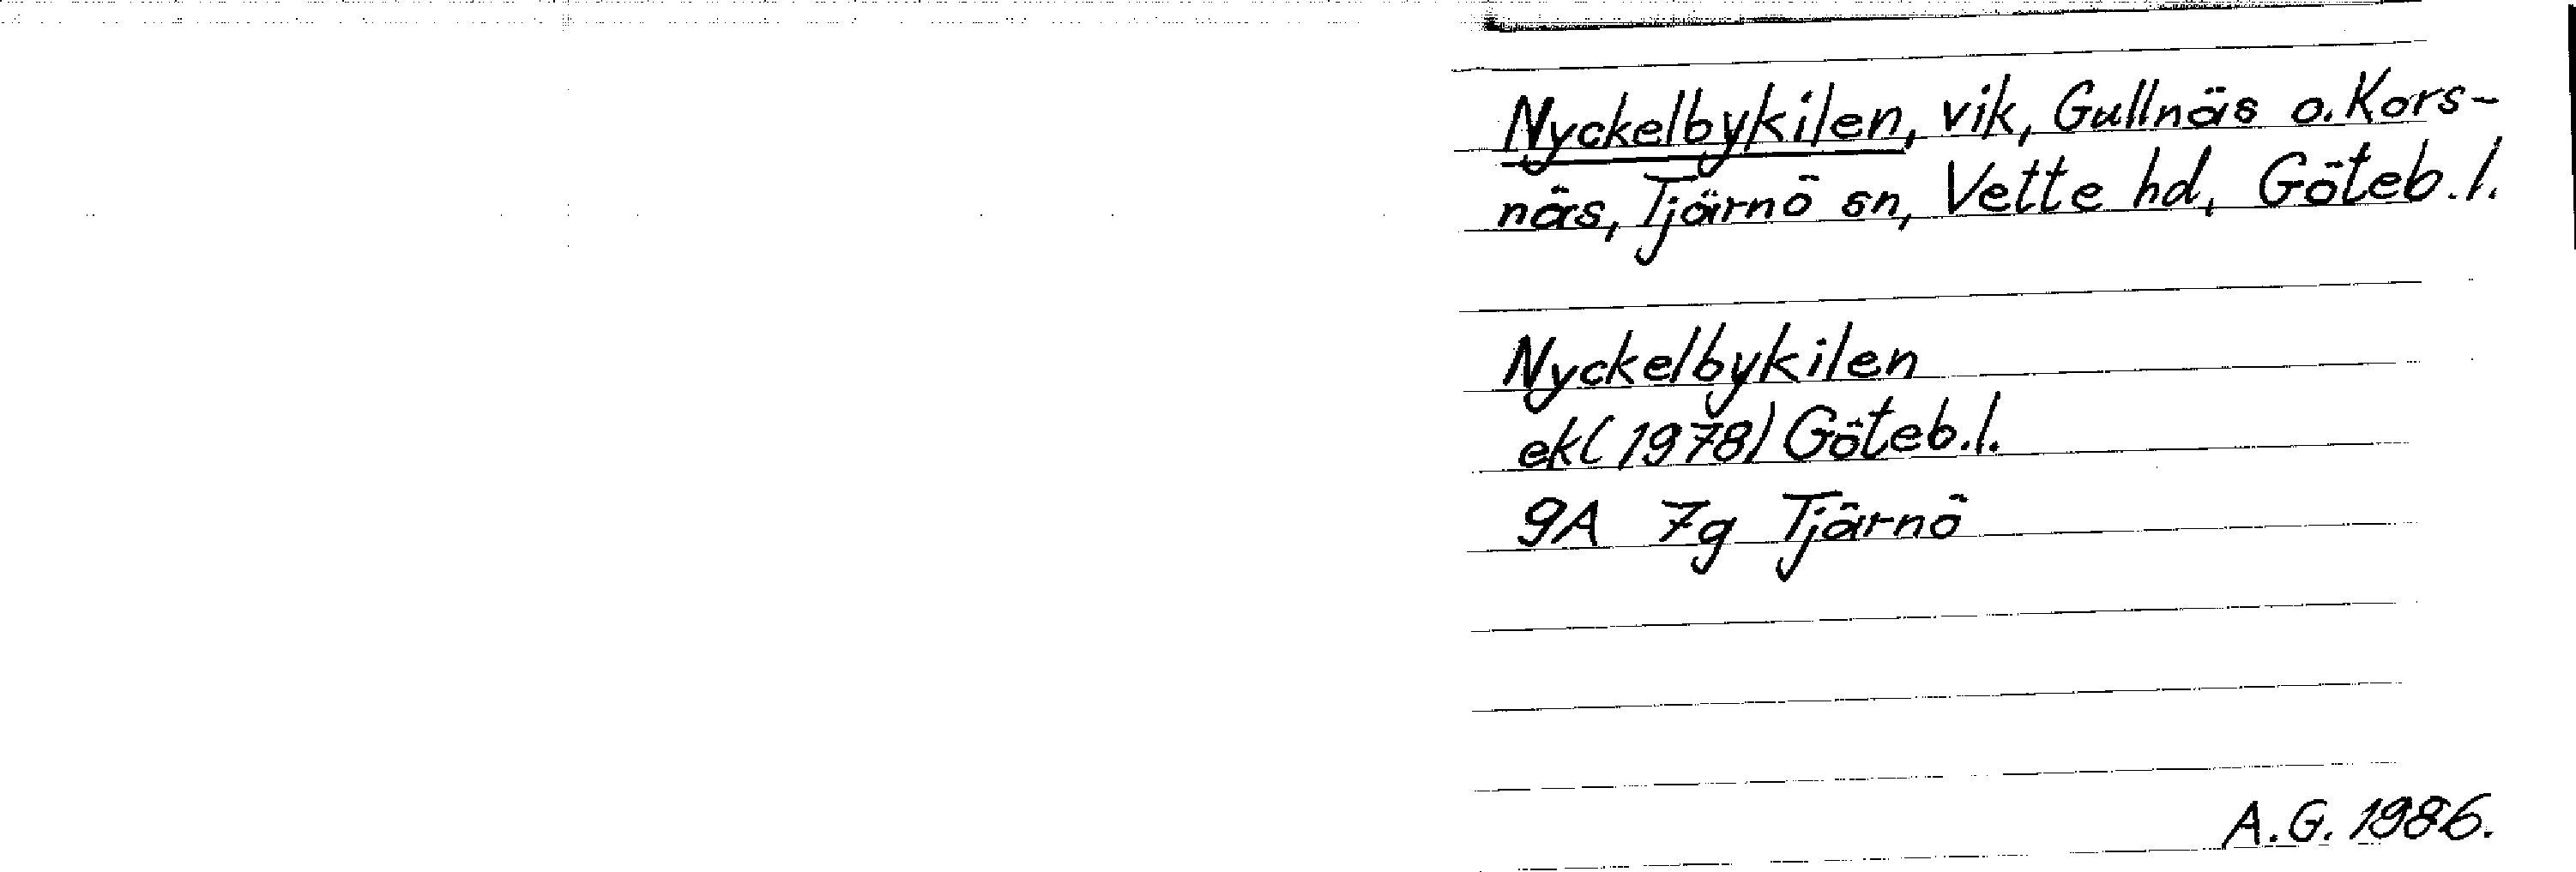 Nyckelbykilen, vik, Gullnäs o. Kors-
näs, Tjärnö sn, Vette hd, Göteb. l.
Nyckelbykilen
ek (1978) Göteb. l.
9A 7g Tjärnö
A.G. 1986.